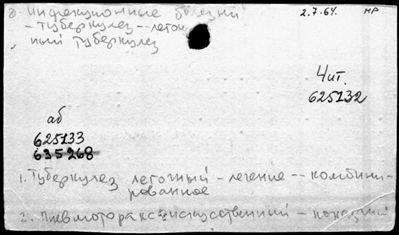 3. Инфекционные болезни 2.7.64. нр
- туберкулез -- легоч
ный туберкулез
Чит.
625132
аб
625133
635268
1. Туберкулез легочный - лечение -- комбини-
рованное
2. Пневмоторакс искусственный - показаний